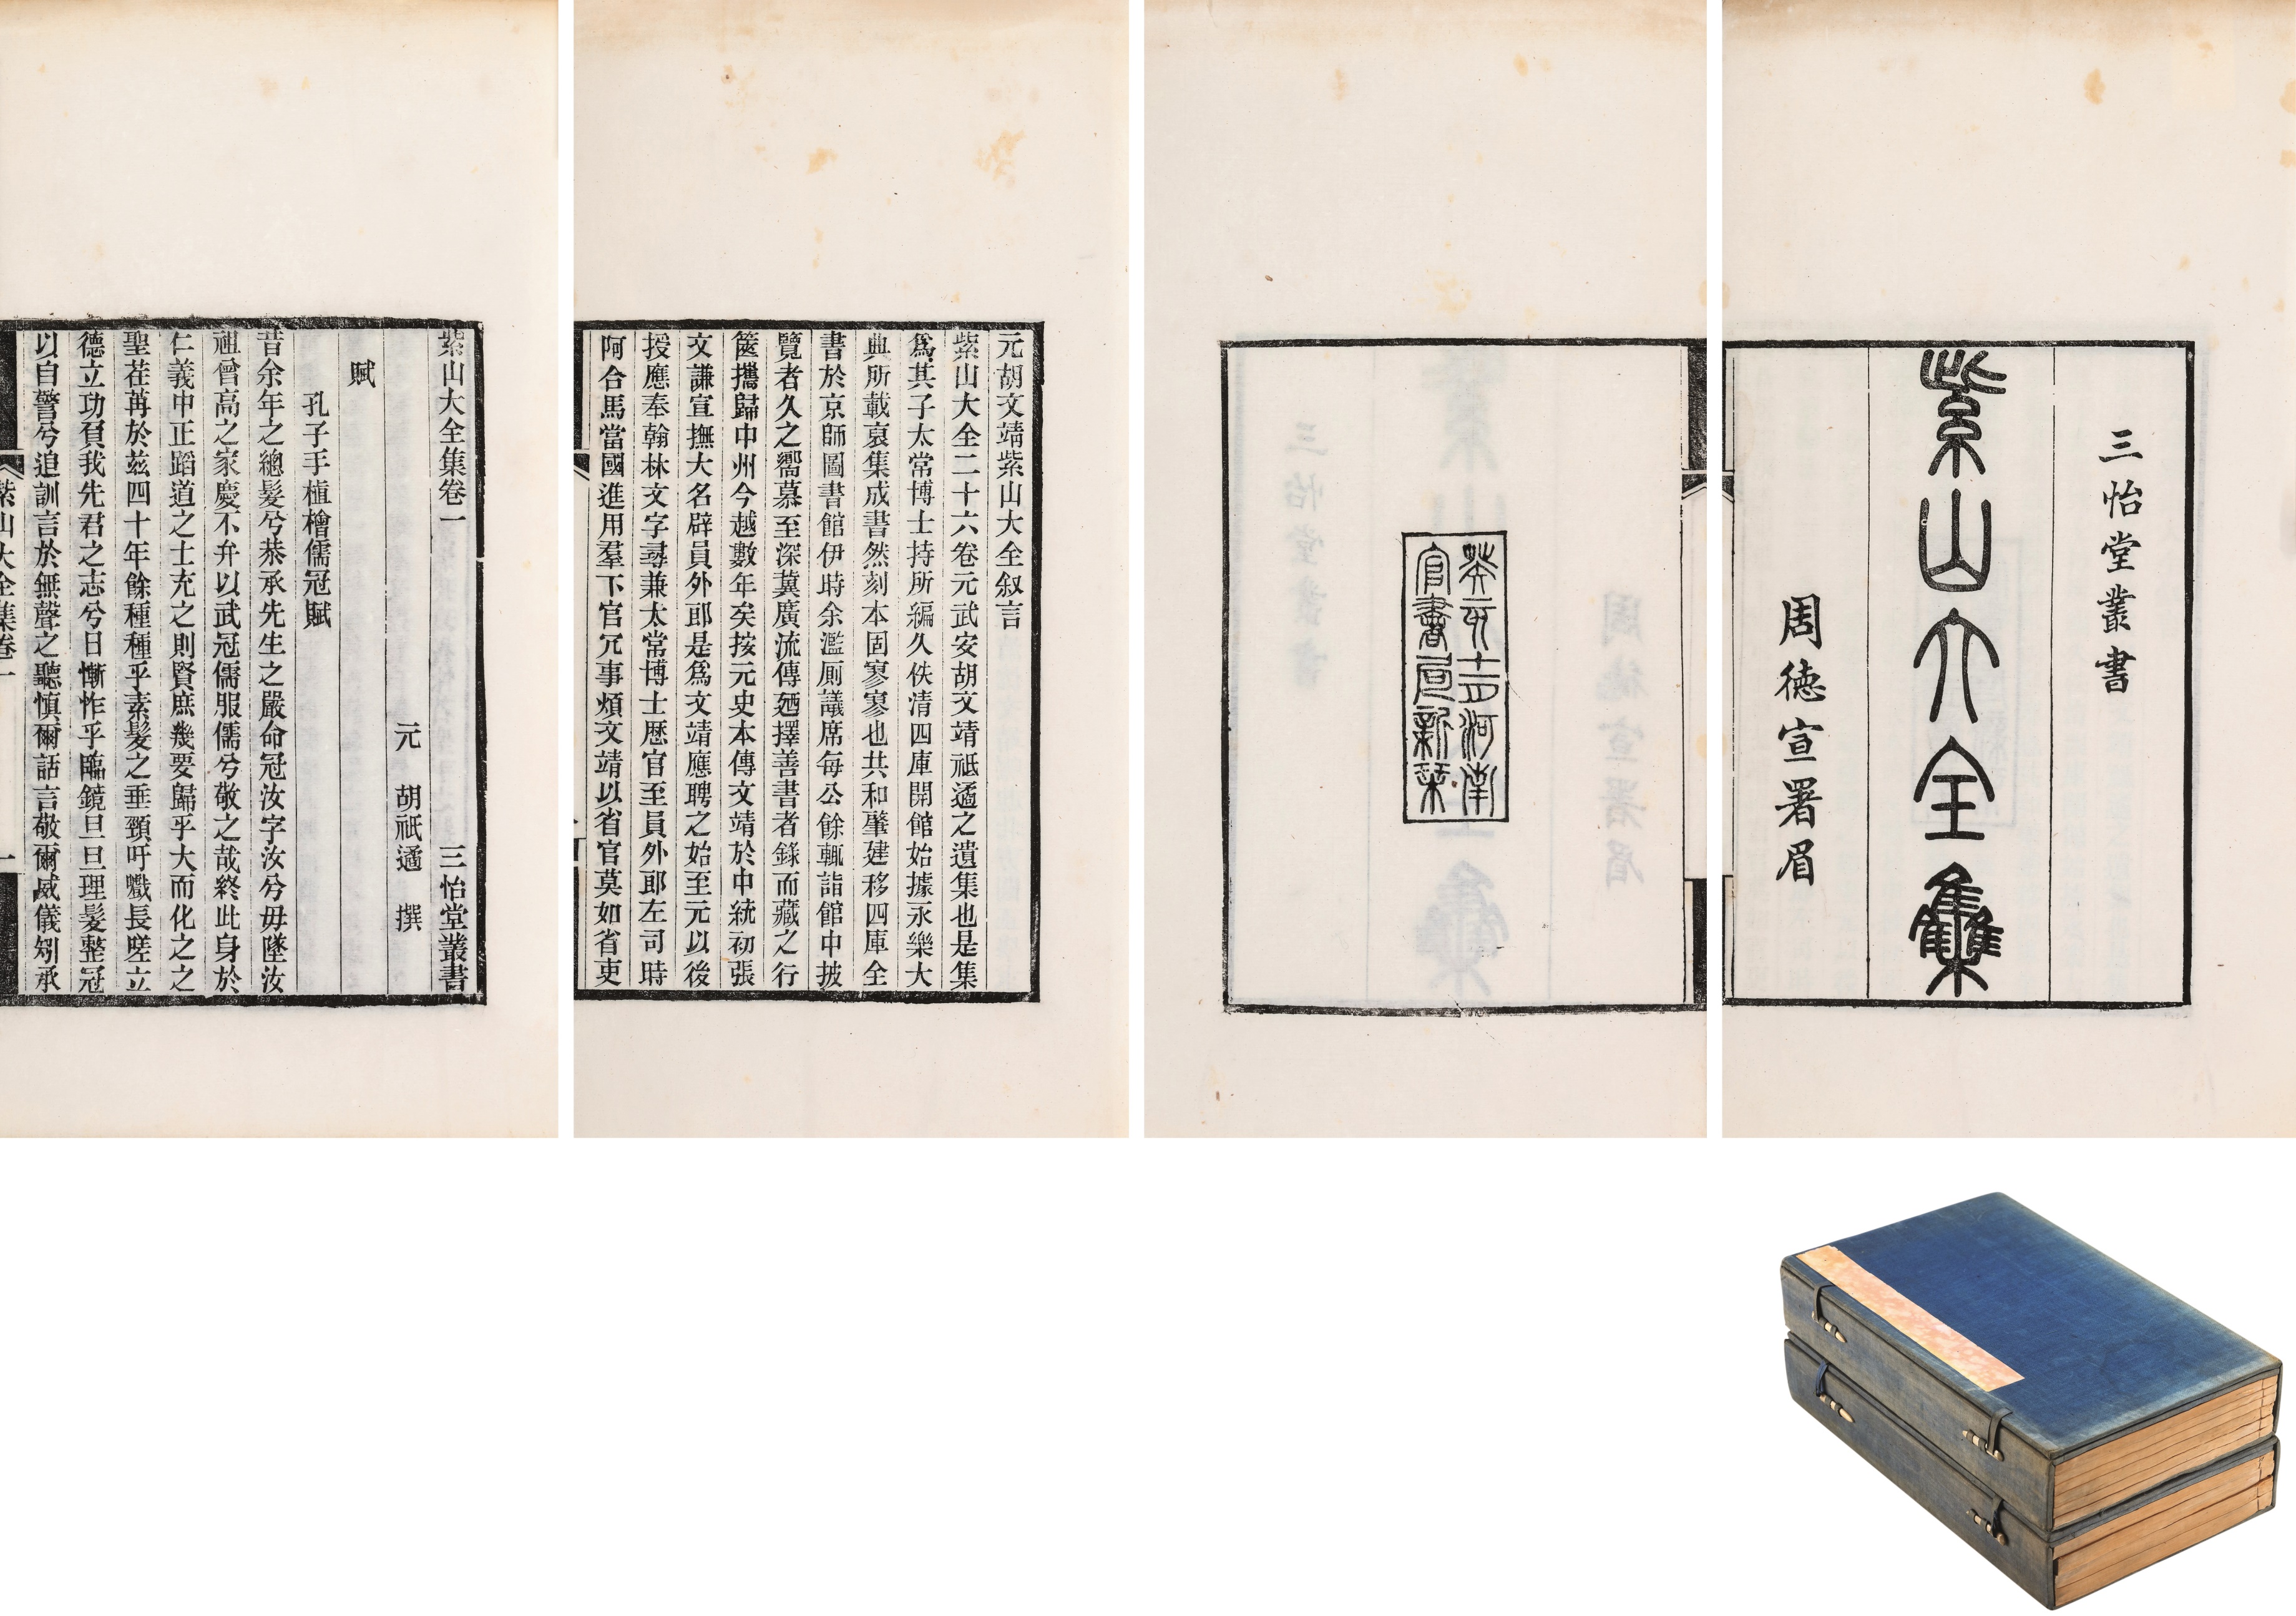 三怡堂叢書
紫山大全集
周德宣署眉
河南
官書局新栞
元胡文靖紫山大全叙言
紫山大全二十六卷元武安胡文靖祗遹之遺集也是集
爲其子太常博士持所編久佚清四庫開館始據永樂大
典所載裒集成書然刻本固寥寥也共和肇建移四庫全
書於京師圖書館伊時余濫厠議席每公餘輒詣館中披
覽者久之嚮慕至深冀廣流傳廼擇善書者錄而藏之行
篋攜歸中州今越數年矣按元史本傳文靖於中統初張
文謙宣撫大名辟員外郎是爲文靖應聘之始至元以後
授應奉翰林文字尋兼太常博士歷官至員外郎左司時
阿合馬當國進用羣下官冗事煩文靖以省官莫如省吏
紫山大全集卷一 三怡堂叢書
元 胡祇遹 撰
賦
孔子手植檜儒冠賦
昔余年之總髮兮恭承先生之嚴命冠汝字汝兮毋墜汝
祖曾高之家慶不弁以武冠儒服儒兮敬之哉終此身於
仁義中正蹈道之士充之則賢庶幾要歸乎大而化之之
聖荏苒於茲四十年餘種種乎素髮之垂頸吁戲長嗟立
德立功負我先君之志兮日慚怍乎臨鏡旦旦理髮整冠
以自警兮追訓言於無聲之聽慎爾話言敬爾威儀矧承
紫山大全集卷一 一